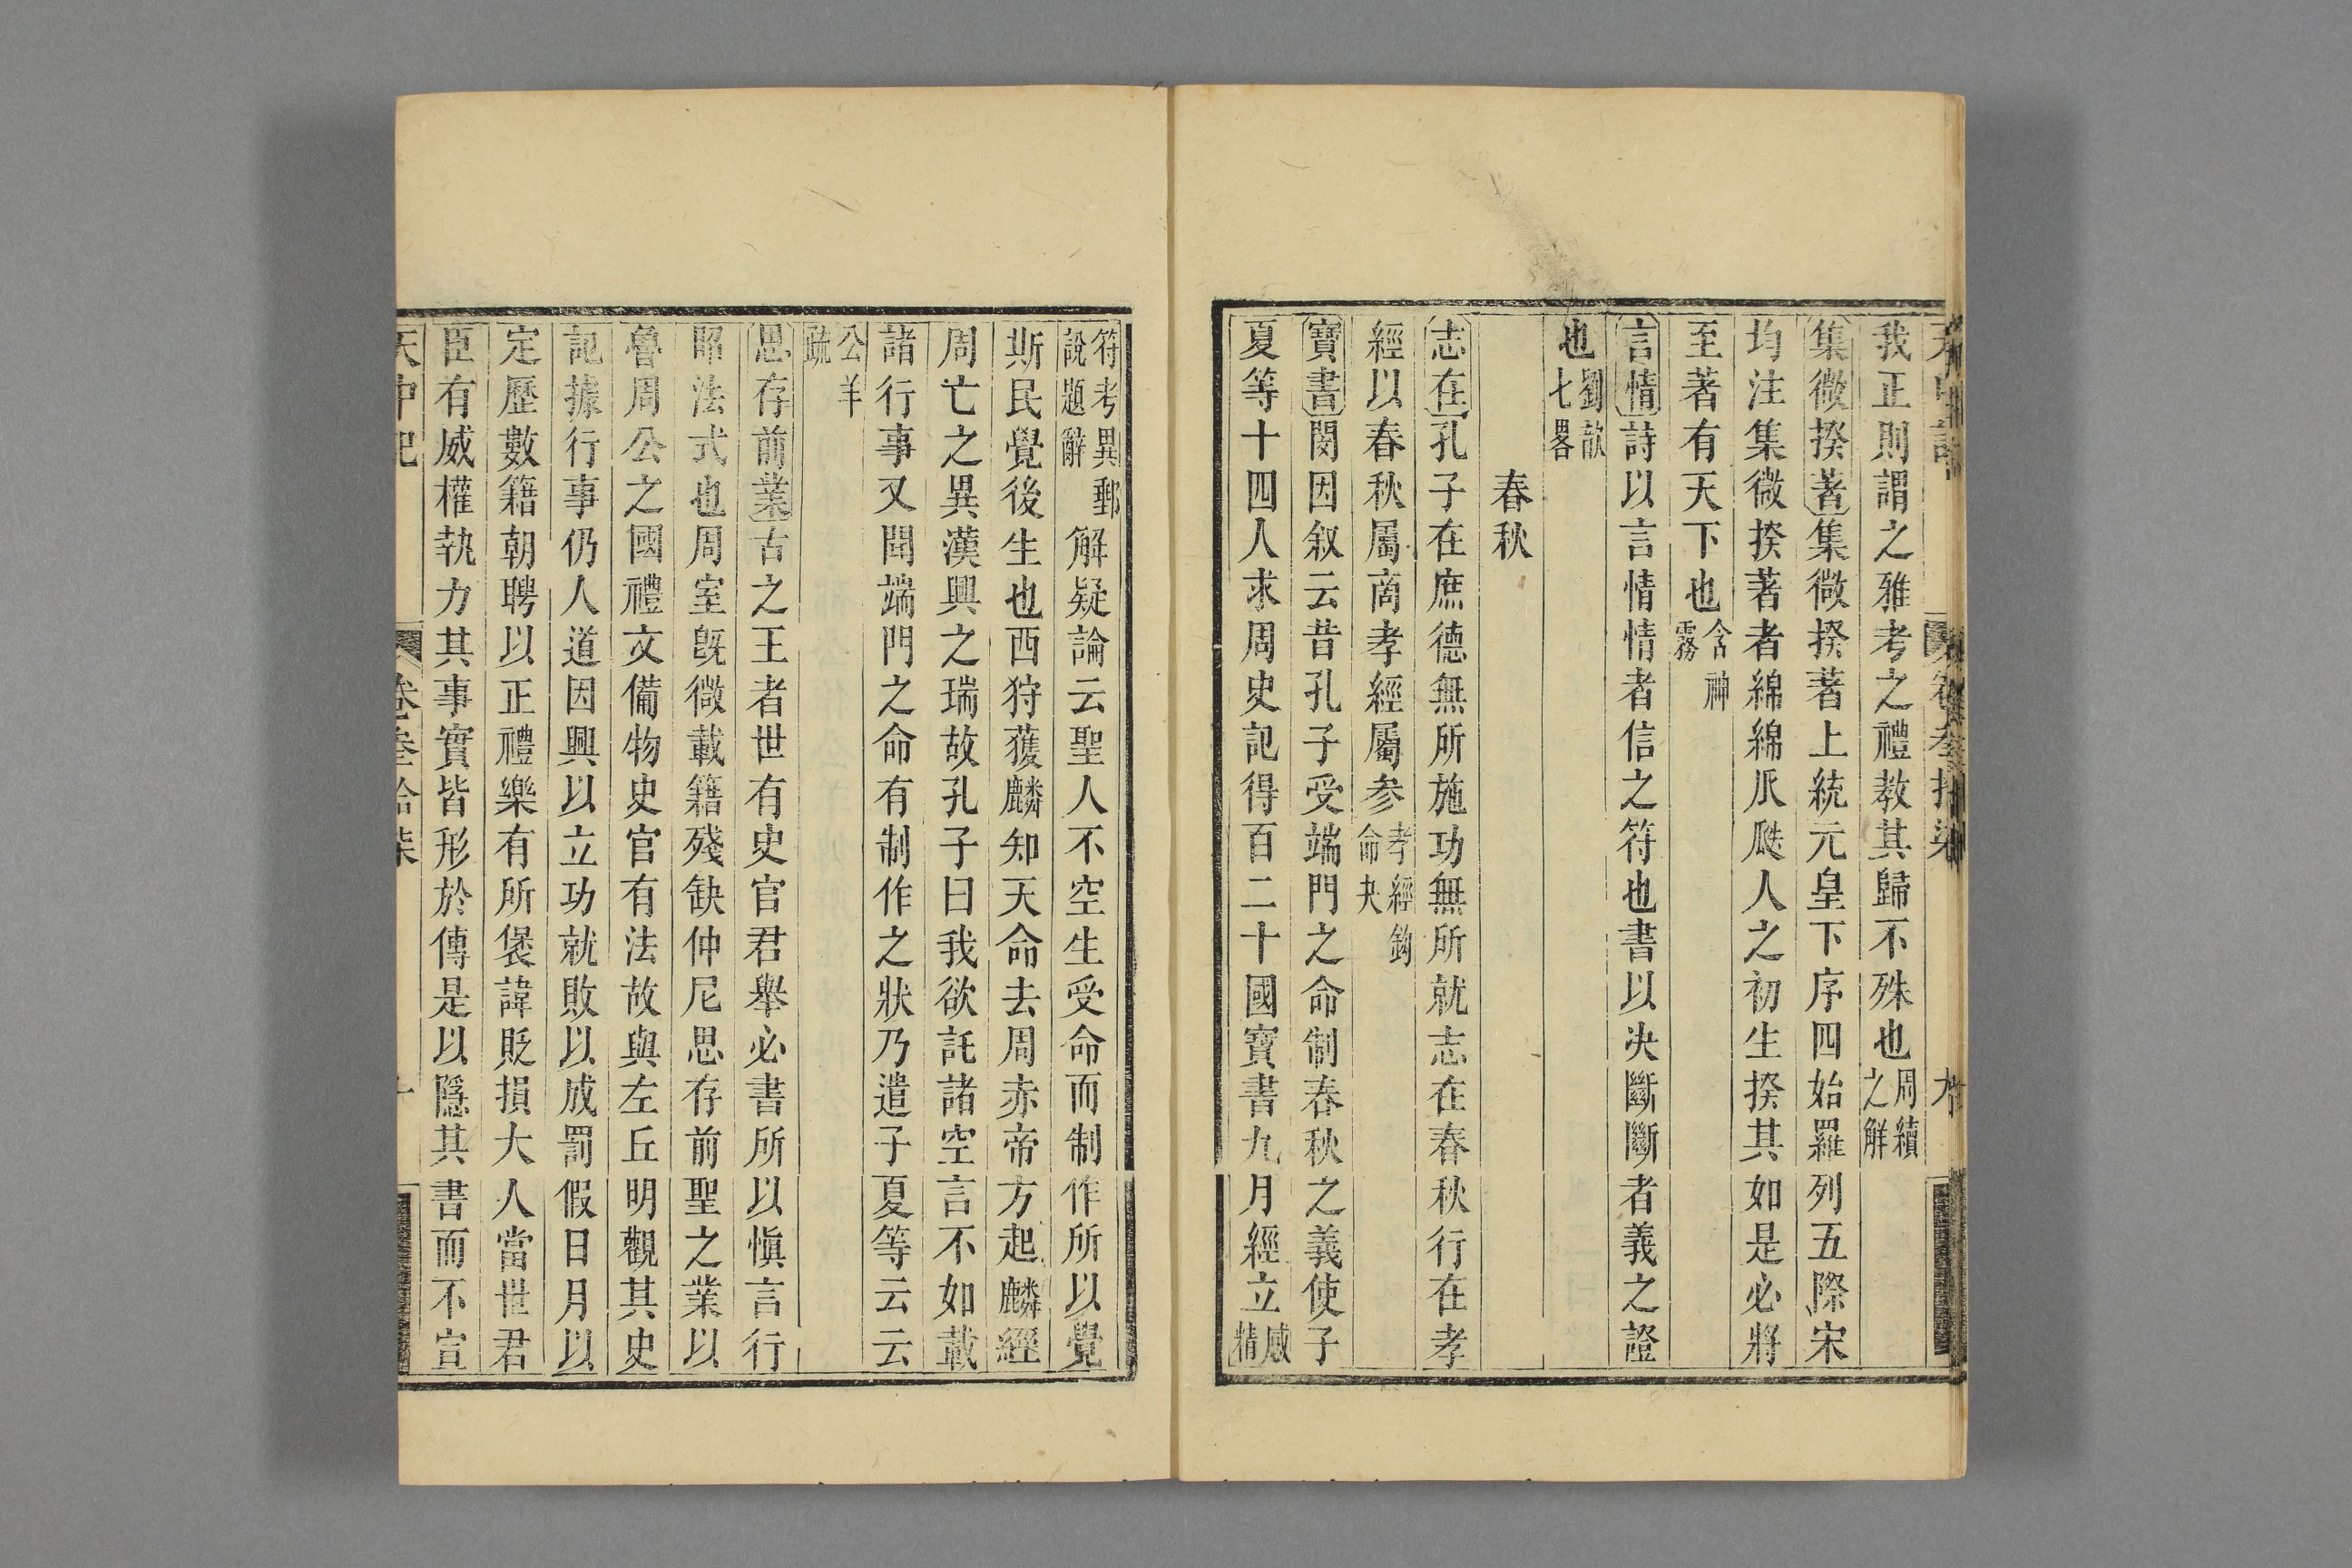 我正則謂之雅考之禮教其歸不殊也周續之解
集微揆著集微揆著上統元皇下序四始羅列五際宋
均注集微揆著者綿綿瓜瓞人之初生揆其如是必將
至著有天下也含神霧
言情詩以言情情者信之符也書以决斷斷者義之證
也劉歆七畧
春秋
志在孔子在庶德無所施功無所就志在春秋行在孝
經以春秋屬商孝經屬参孝經鈎命夬
寶書閔因叙云昔孔子受端門之命制春秋之義使子
夏等十四人求周史記得百二十國寶書九月經立感精
符考異郵說題辭解疑論云聖人不空生受命而制作所以覺
斯民覺後生也西狩獲麟知天命去周赤帝方起麟經
周亡之異漢興之瑞故孔子曰我欲託諸空言不如載
諸行事又聞端門之命有制作之狀乃遣子夏等云云
公羊疏
思存前業古之王者世有史官君舉必書所以慎言行
昭法式也周室旣微載籍殘缺仲尼思存前聖之業以
魯周公之國禮文備物史官有法故與左丘明觀其史
記據行事仍人道因興以立功就敗以成罰假日月以
定歷數籍朝聘以正禮樂有所襃諱貶損大人當世君
臣有威權執力其事實皆形於傳是以隱其書而不宣
天中記 卷叁拾柒 十